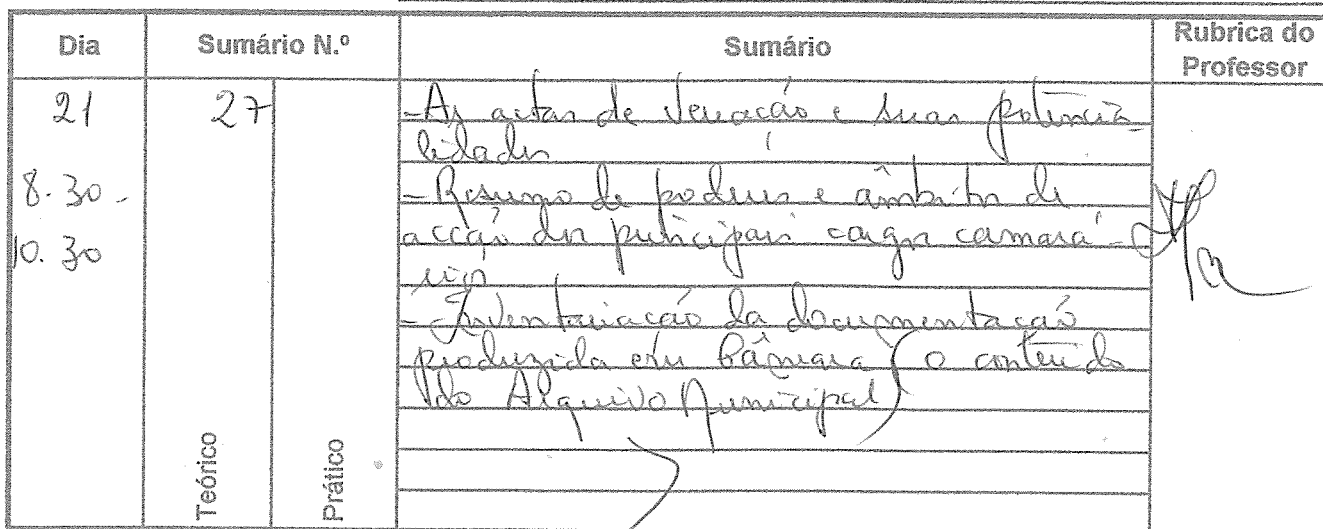 Dia
Sumário N.º
Sumário
Rubrica do
Professor
21
27
8.30 -
10.30
Teórico
Prático
- As actas de Vereação e suas potencia-
lidades
- Resumo de poderes e âmbito de
acção dos principais cargos camará-
rios
- Inventariação da documentação
produzida em Câmara (o conteúdo
do Arquivo Municipal)